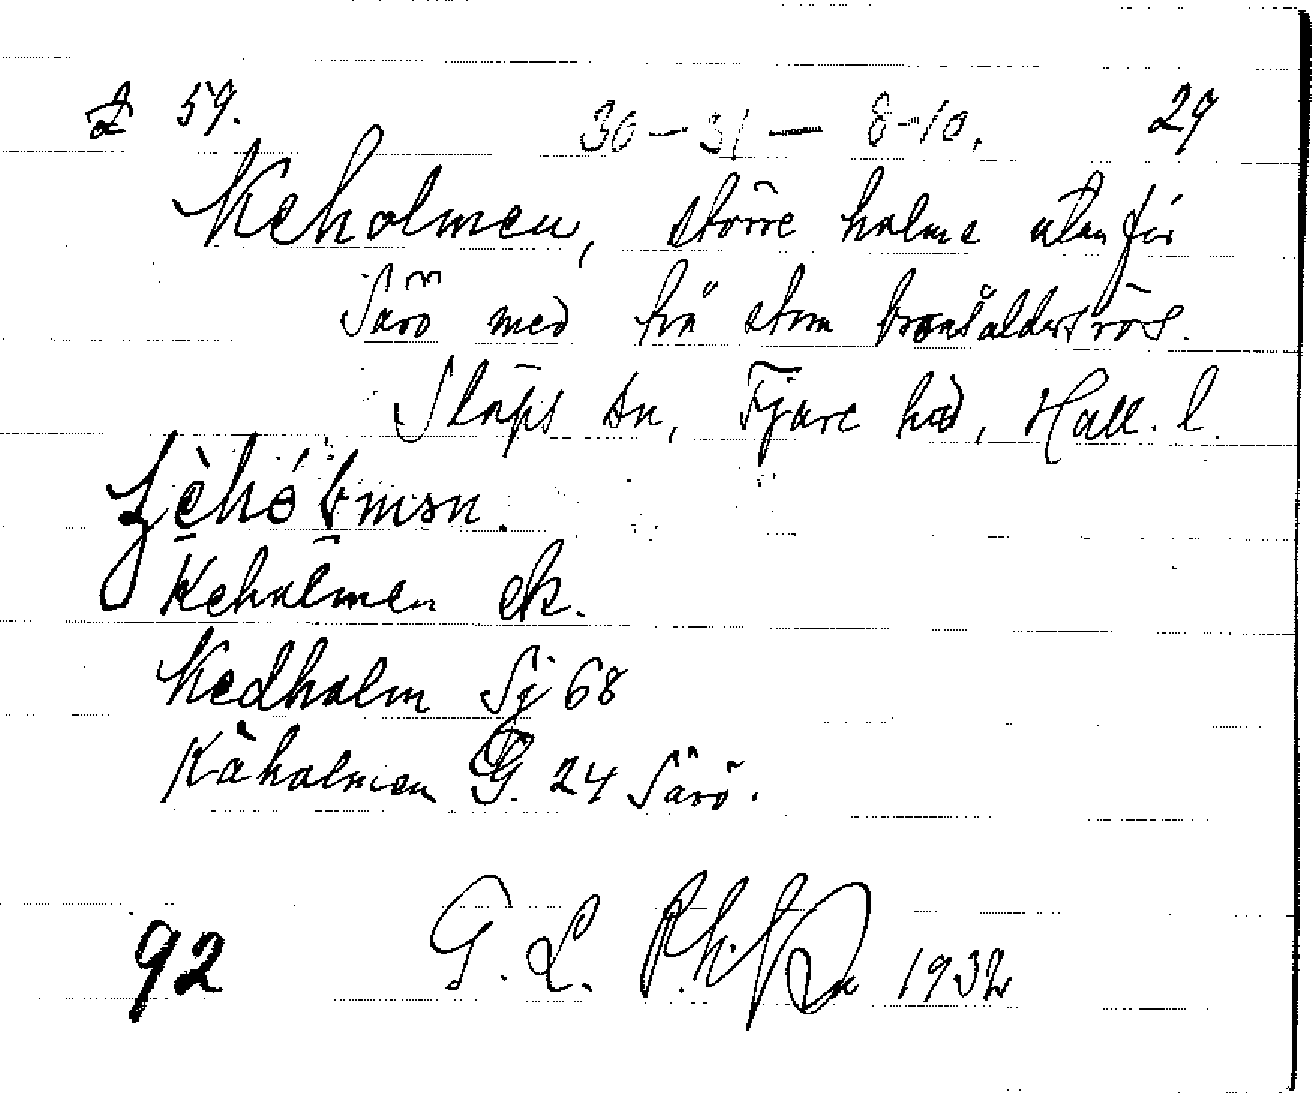 59. 30-31 — 8-10. 29
Keholmen, större holme utanför
Särö med två stora bronsåldersrös.
Släps sn, Fjäre hd, Hall. l.
Keholmen ek.
Kedholm Sj 68
Kåholmen G. 24 Särö.
92 G. L. 1932